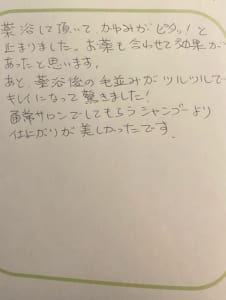 薬浴して頂いて、かゆみがピタッ!と
止まりました。お薬も合わせて効果が
あったと思います。
あと、薬浴後の毛並みがツルツルで
キレイになって驚きました!
通常サロンでしてもらうシャンプーより
仕上がりが美しかったです。